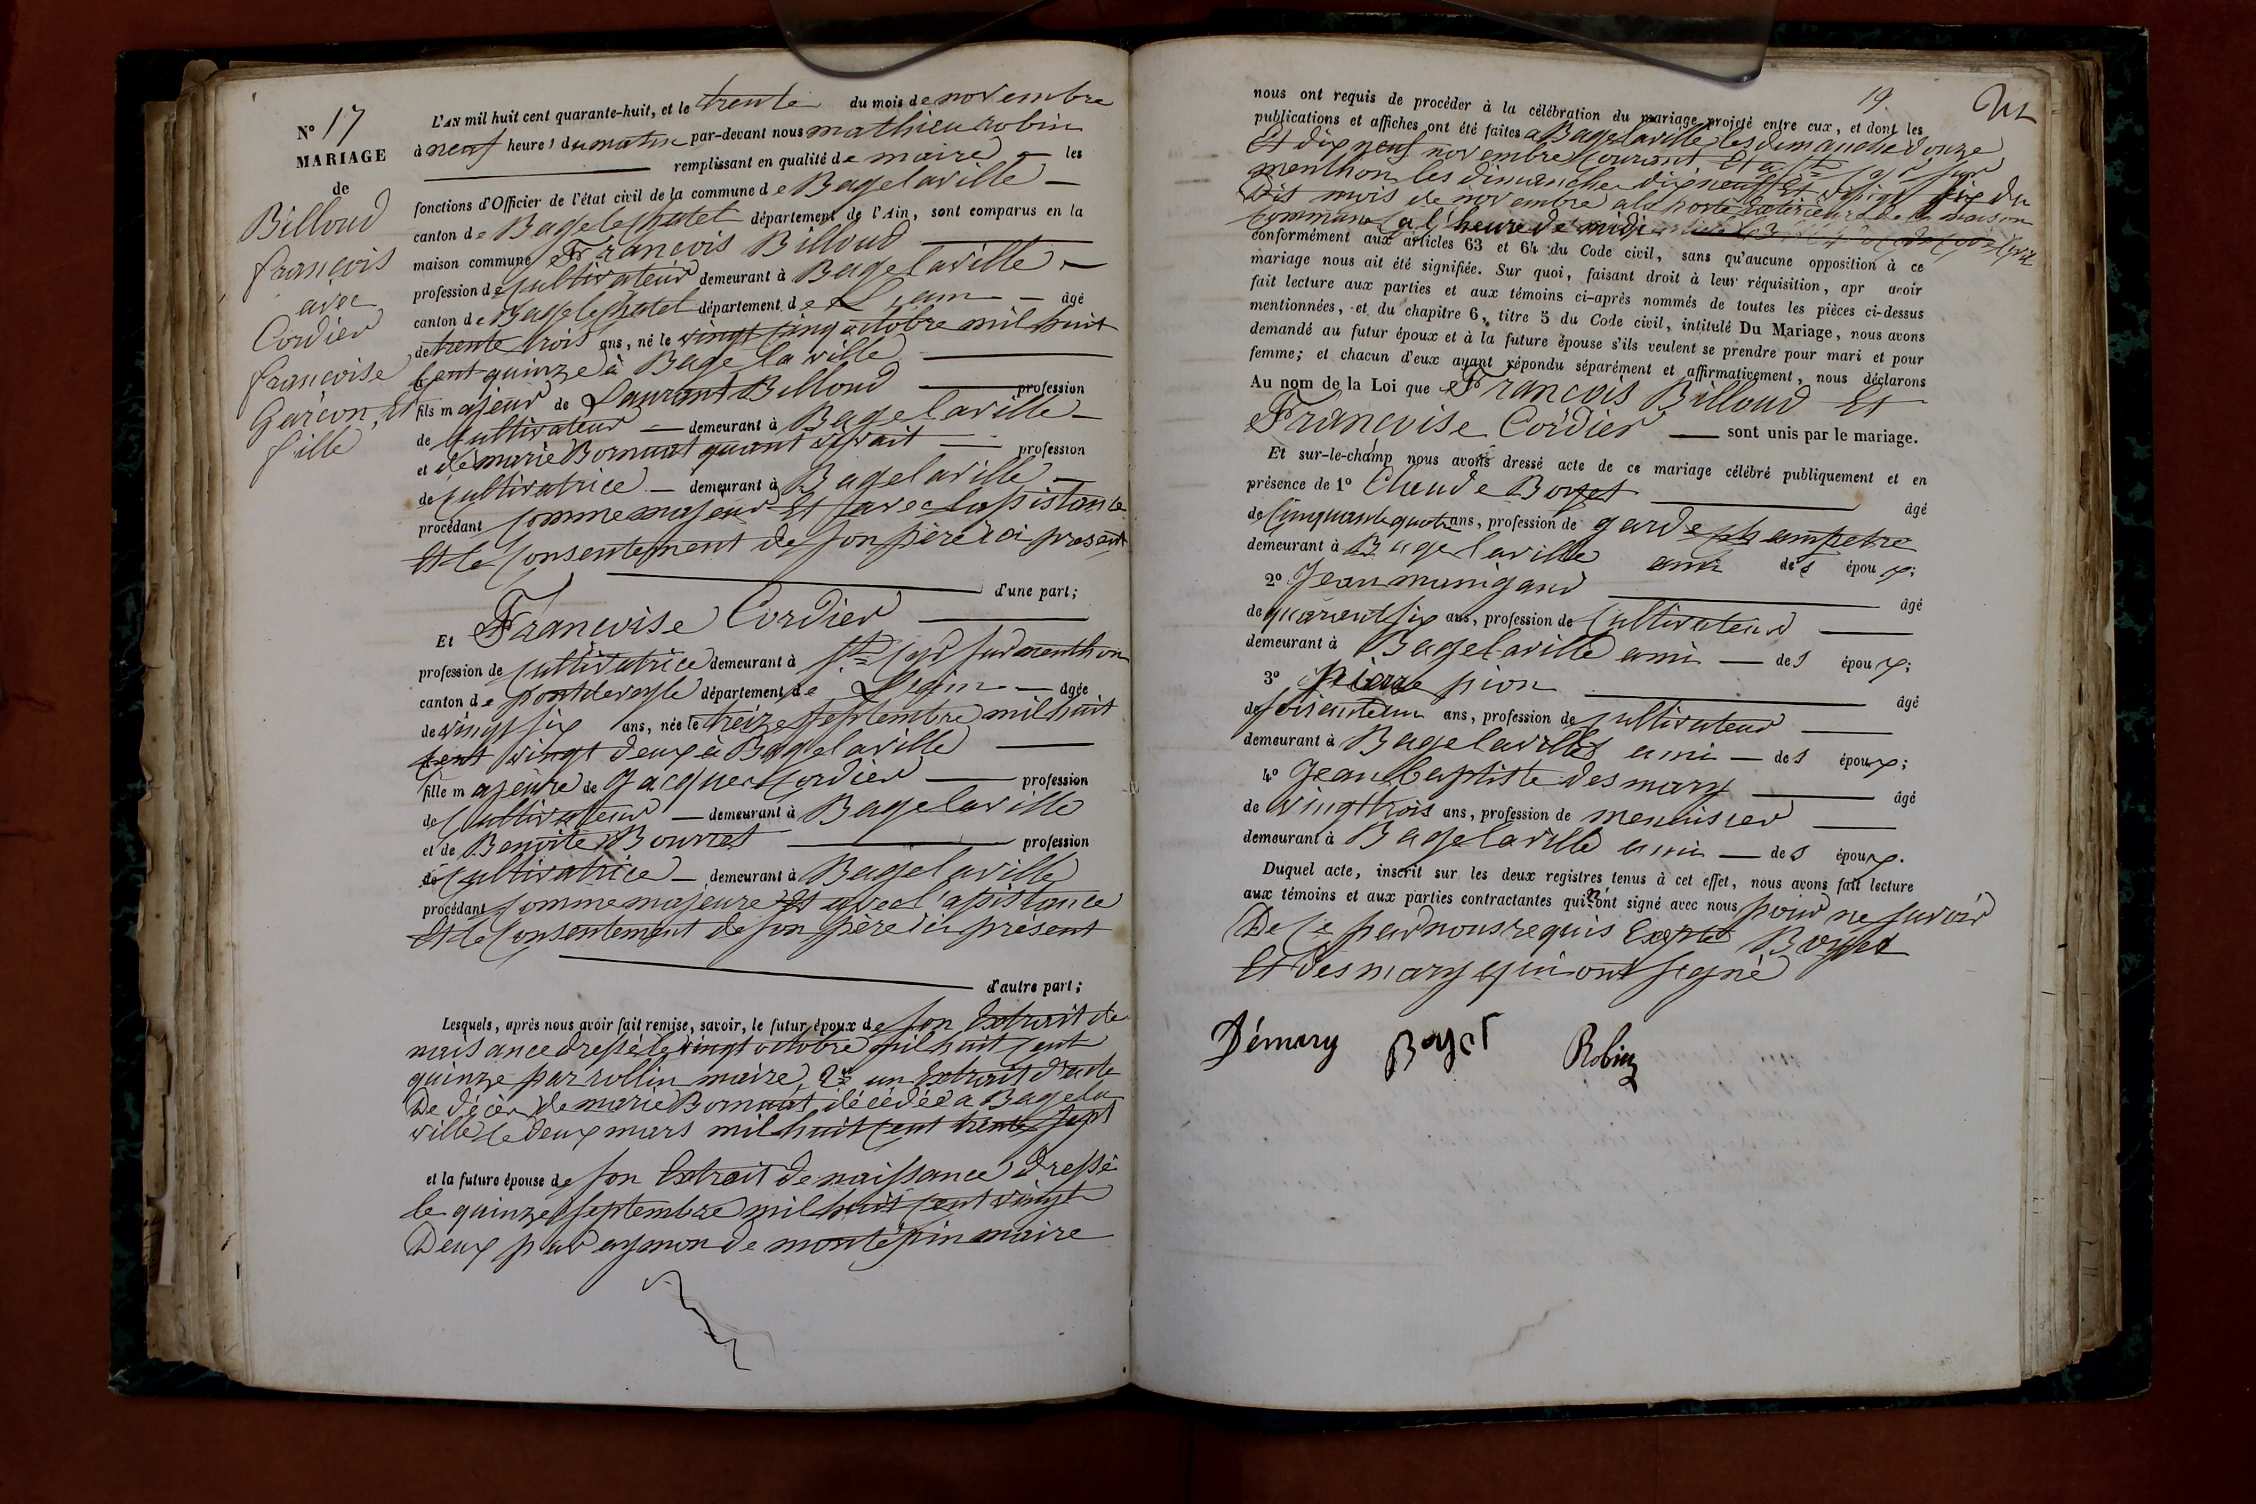 N° 17
MARIAGE
de
Billoud
françois
avec
Cordier
françoise
Garçon, Et
fille
L'AN mil huit cent quarante-huit, et le trente du mois de novembre
à neuf heures du matin par-devant nous mathieu robin
remplissant en qualité de maire les
fonctions d'Officier de l'état civil de la commune de Bagelaville
canton de Bagelechatel département de l'Ain, sont comparus en la
maison commune François Billoud
profession de cultivateur demeurant à Bagelaville
canton de Bagelechatel département de L'ain âgé
de trente trois ans, né le vingt cinq octobre mil huit
Cent quinze à Bage la ville
fils majeur de Laurent Billoud profession
de cultivateur demeurant à Bagelaville
et de marie Bornuat quant vivait profession
de cultivatrice demeurant à Bagelaville
procédant comme majeur Et avec lassistance
Et le Consentement de son père ici présent
d'une part;
Et Françoise Cordier
profession de cultivatrice demeurant à St Cyr sur menthon
canton de pontdeveyle département de L'ain âgée
de vingt six ans, née le treize septembre mil huit
cent vingt deux à Bagelaville
fille majeure de Jacques Cordier profession
de cultivateur demeurant à Bagelaville
et de Benoite Bourret profession
de cultivatrice demeurant à Bagelaville
procédant comme majeure Et avec l'assistance
Et le Consentement de son père ici présent
d'autre part;
Lesquels, après nous avoir fait remise, savoir, le futur époux de son Extrait de
naisance dressé le vingt octobre mil huit cent
quinze par rollin maire, 2° un Extrait d'acte
De décès de marie Bornuat décédée a Bagela
ville le deux mars mil huit cent trente sept
et la future épouse de son Extrait de naissance dressé
le quinze septembre mil huit cent vingt
Deux par aymon de montépin maire
19
nous ont requis de procéder à la célébration du mariage projeté entre eux, et dont les
publications et affiches ont été faites a Bagelaville les dimanche douze
Et dix neuf novembre Courant Et a St Cyr sur
menthon les dimanche dix neuf Et vingt six du
Dit mois de novembre a la porte Extérieure de la maison
Commune a l'heure de midi
conformément aux articles 63 et 64 du Code civil, sans qu'aucune opposition à ce
mariage nous ait été signifiée. Sur quoi, faisant droit à leur réquisition, apr avoir
fait lecture aux parties et aux témoins ci-après nommés de toutes les pièces ci-dessus
mentionnées, et du chapitre 6, titre 5 du Code civil, intitulé Du Mariage, nous avons
demandé au futur époux et à la future épouse s'ils veulent se prendre pour mari et pour
femme; et chacun d'eux ayant répondu séparément et affirmativement, nous déclarons
Au nom de la Loi que François Billoud Et
Françoise Cordier sont unis par le mariage.
Et sur-le-champ nous avons dressé acte de ce mariage célébré publiquement et en
présence de 1° Claude Boyet âgé
de Cinquantequatre ans, profession de garde champetre
demeurant à Bagelaville ami des époux;
2° Jean munigand âgé
de quarentesix ans, profession de cultivateur
demeurant à Bagelaville ami des époux;
3° Pierre pion âgé
de soisanteun ans, profession de cultivateur
demeurant à Bagelaville ami des époux;
4° Jean baptiste desmary âgé
de vingttrois ans, profession de menuisier
demeurant à Bagelaville ami des époux.
Duquel acte, inscrit sur les deux registres tenus à cet effet, nous avons fait lecture
aux témoins et aux parties contractantes qui n'ont signé avec nous pour ne savoir
De ce par nous requis Excepté Boyet
Et desmary qui ont signé
Démary Boyet Robin